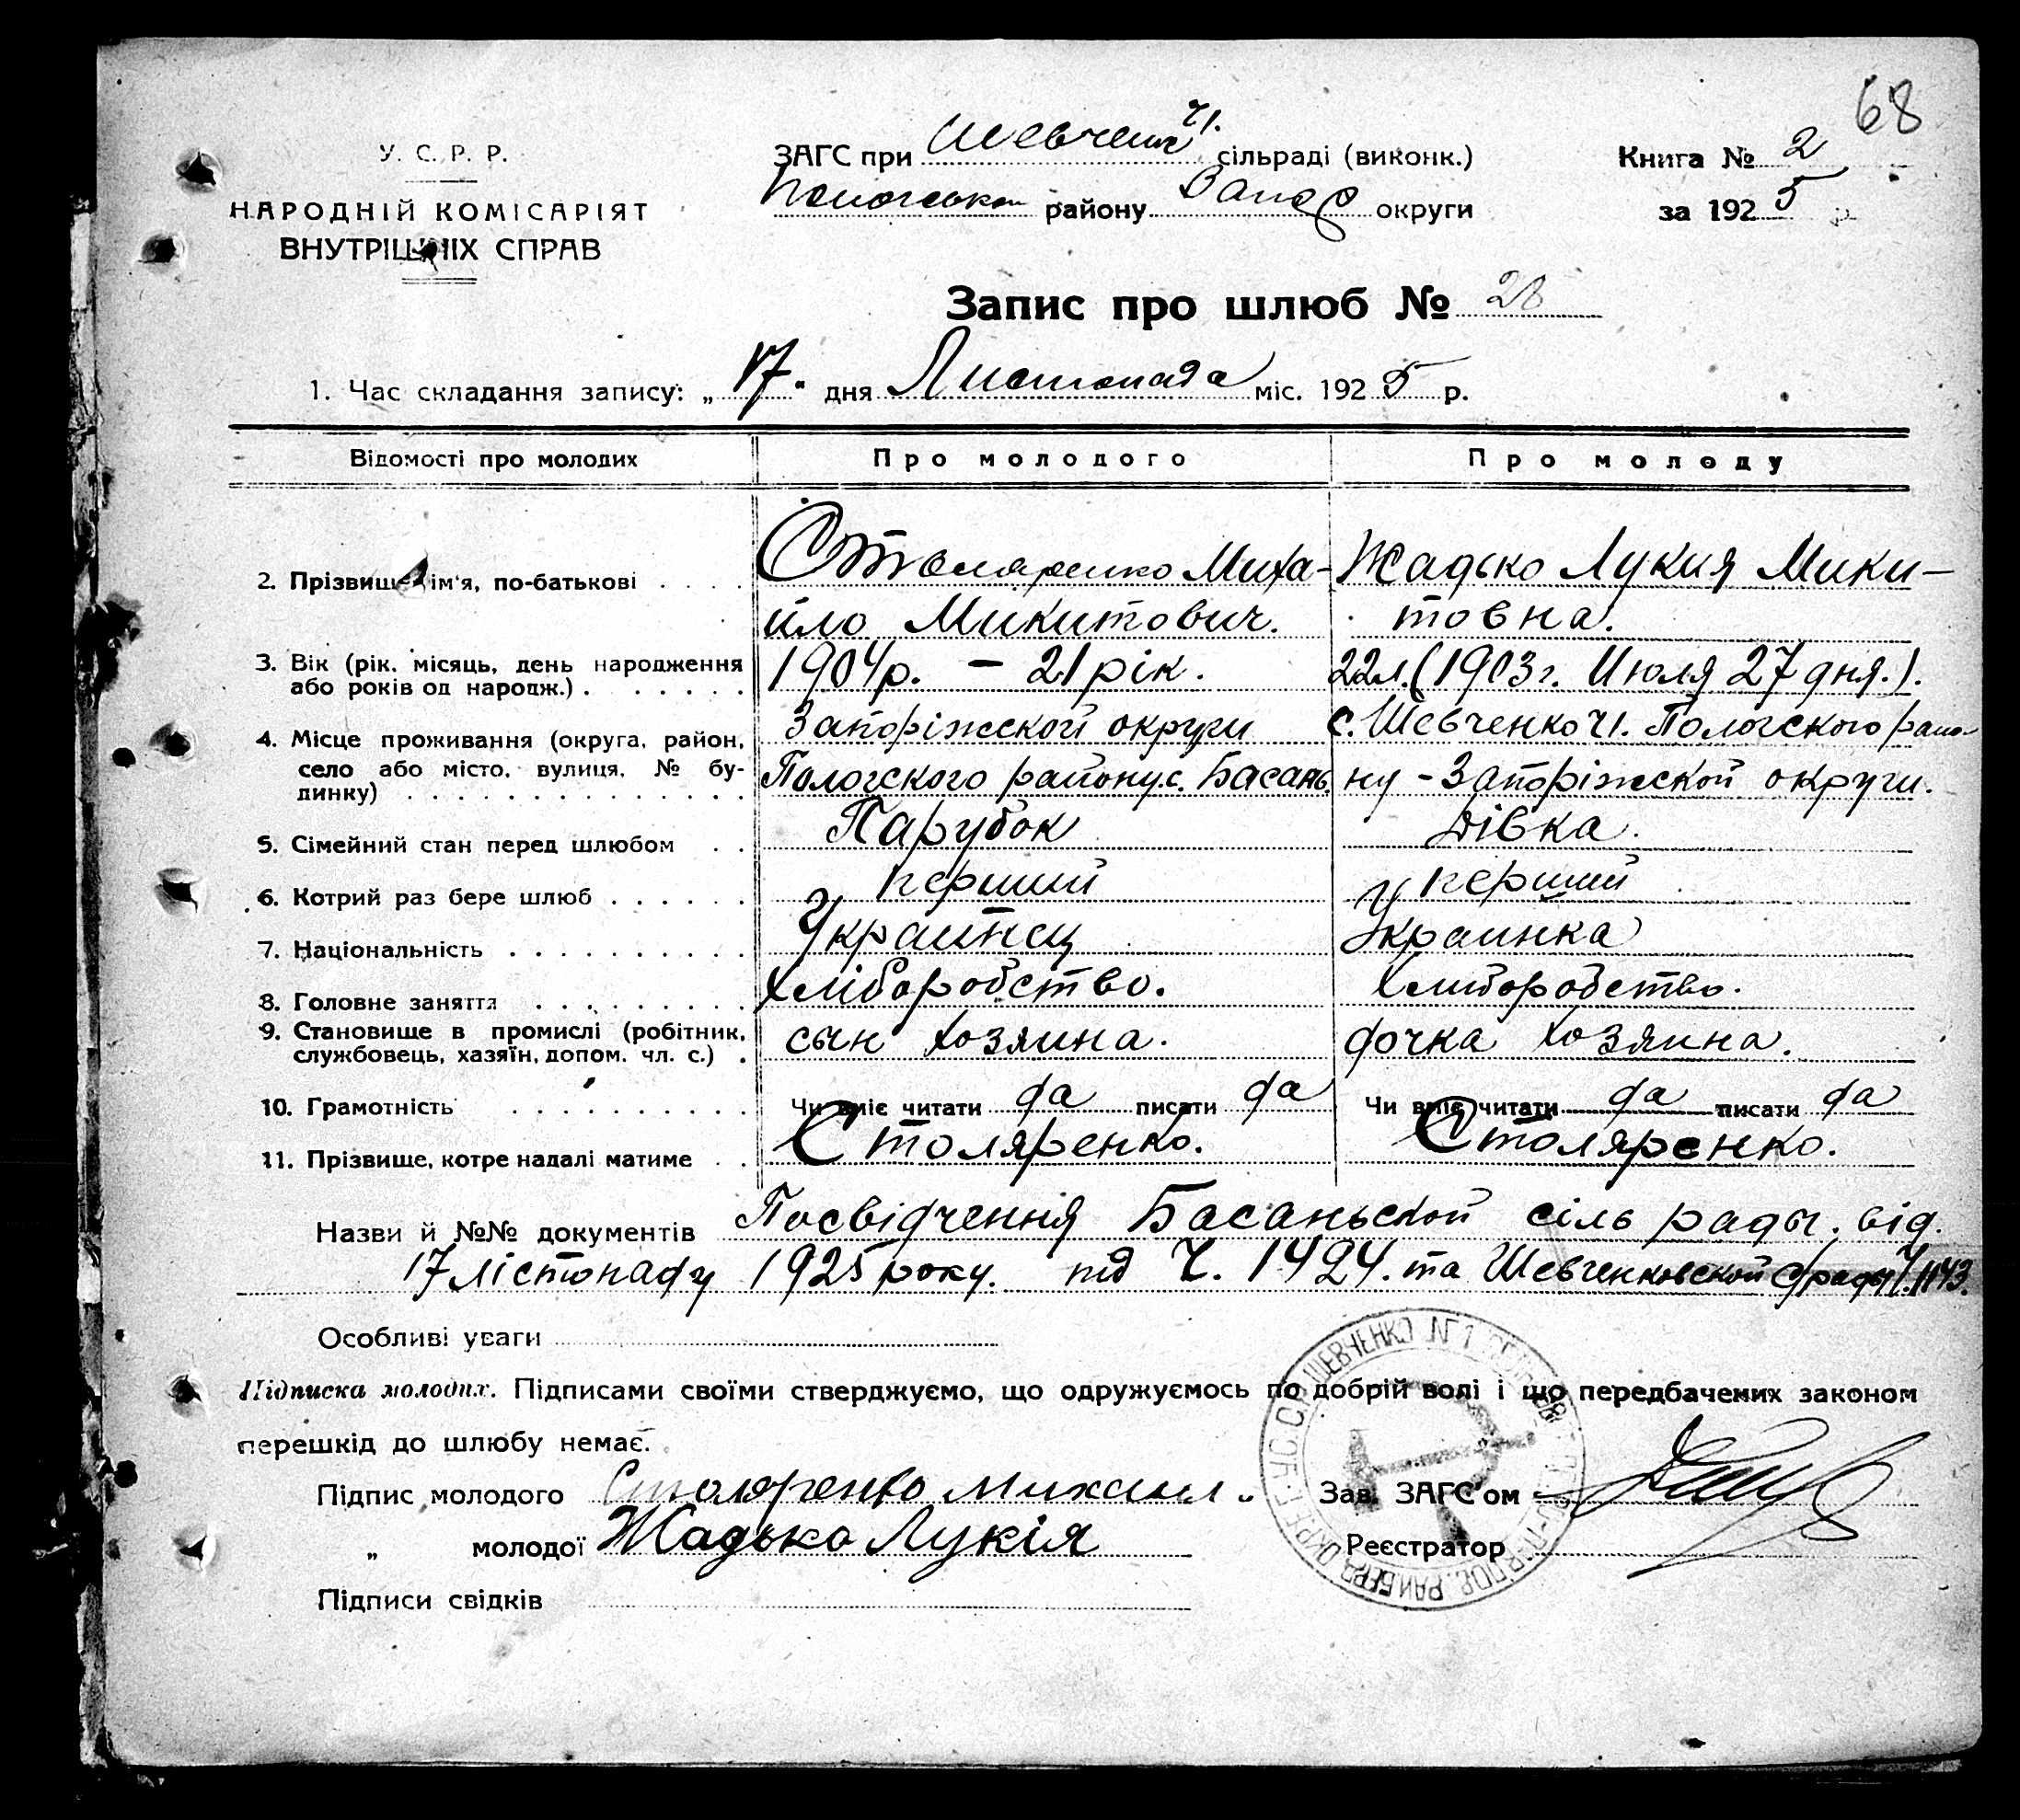 68
У. С. Р. Р.
НАРОДНІЙ КОМІСАРІЯТ
ВНУТРІШНІХ СПРАВ
ЗАГС при Шевченк ч1. сільраді (виконк.)
Пологськом району Запор округи
Книга № 2
за 1925 р
Запис про шлюб № 28
1. Час складання запису: „17“ дня Листопада міс. 1925 р.
Відомості про молодих
Про молодого
Про молоду
2. Прізвище, ім'я, по-батькові . . . .
Столяренко Миха-
йло Микитович.
Жадько Лукия Мики-
товна.
3. Вік (рік, місяць, день народження
або років од народж.) . . . . . . .
1904р. – 21 рік.
22л. (1903г. Июля 27 дня.).
4. Місце проживання (округа, район,
село або місто, вулиця, № бу-
динку) . . . . . . . . . . . . . .
Запоріжской округи
Пологского району с. Басань.
с. Шевченко ч1. Пологского райо-
ну - Запоріжской округи.
5. Сімейний стан перед шлюбом . .
Парубок
Дівка.
6. Котрий раз бере шлюб . . . . . .
перший
перший
7. Національність . . . . . . . . . .
Украинец
Украинка
8. Головне заняття . . . . . . . . .
Хліборобство.
Хлиборобство.
9. Становище в промислі (робітник,
службовець, хазяїн, допом. чл. с.) .
сын хозяина.
дочка хозяина.
10. Грамотність . . . . . . . . . .
Чи вміє читати да писати да
Чи вміє читати да писати да
11. Прізвище, котре надалі матиме . .
Столяренко.
Столяренко.
Назви й №№ документів Посвідчення Басаньской сіль рады. від.
17 лістопаду 1925 року. під Ч. 1424. та Шевченковской с/рады Ч. 1143.
Особливі уваги
Підписка молодих. Підписами своїми стверджуємо, що одружуємось по добрій волі і що передбачених законом
перешкід до шлюбу немає.
Підпис молодого Столяренко Михаил
Зав. ЗАГС'ом
„ молодої Жадько Лукія
Реєстратор
Підписи свідків
У.С.С.Р. ШЕВЧЕНКО №1